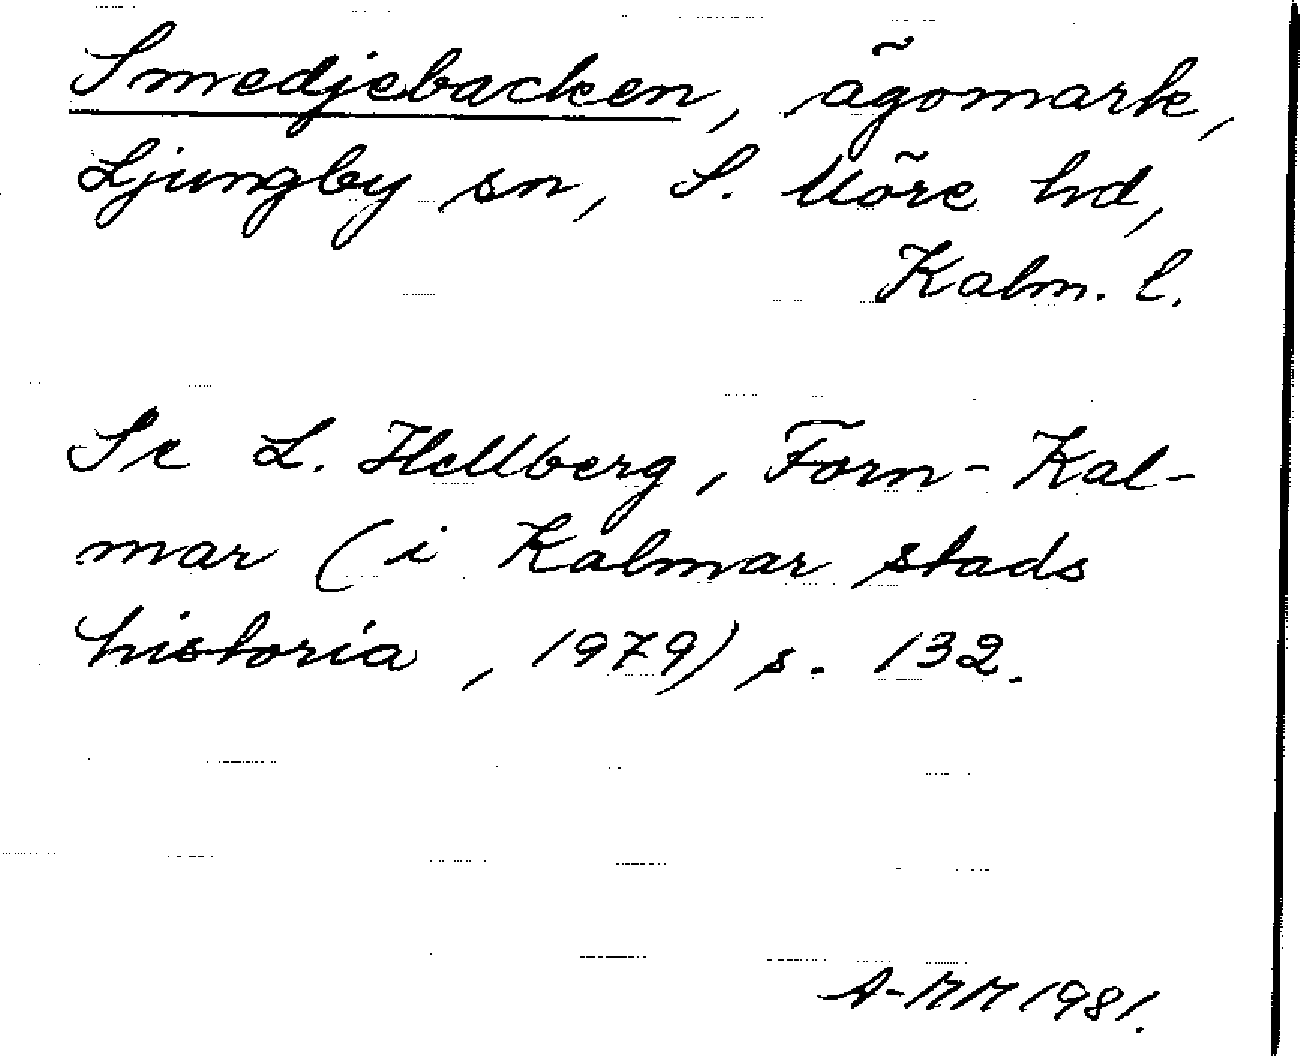 Smedjebacken, ägomark,
Ljungby sn, S. Möre hd,
Kalm. l.
Se L. Hellberg, Forn-Kal-
mar (i Kalmar stads
historia, 1979) s. 132.
A-MM 1981.